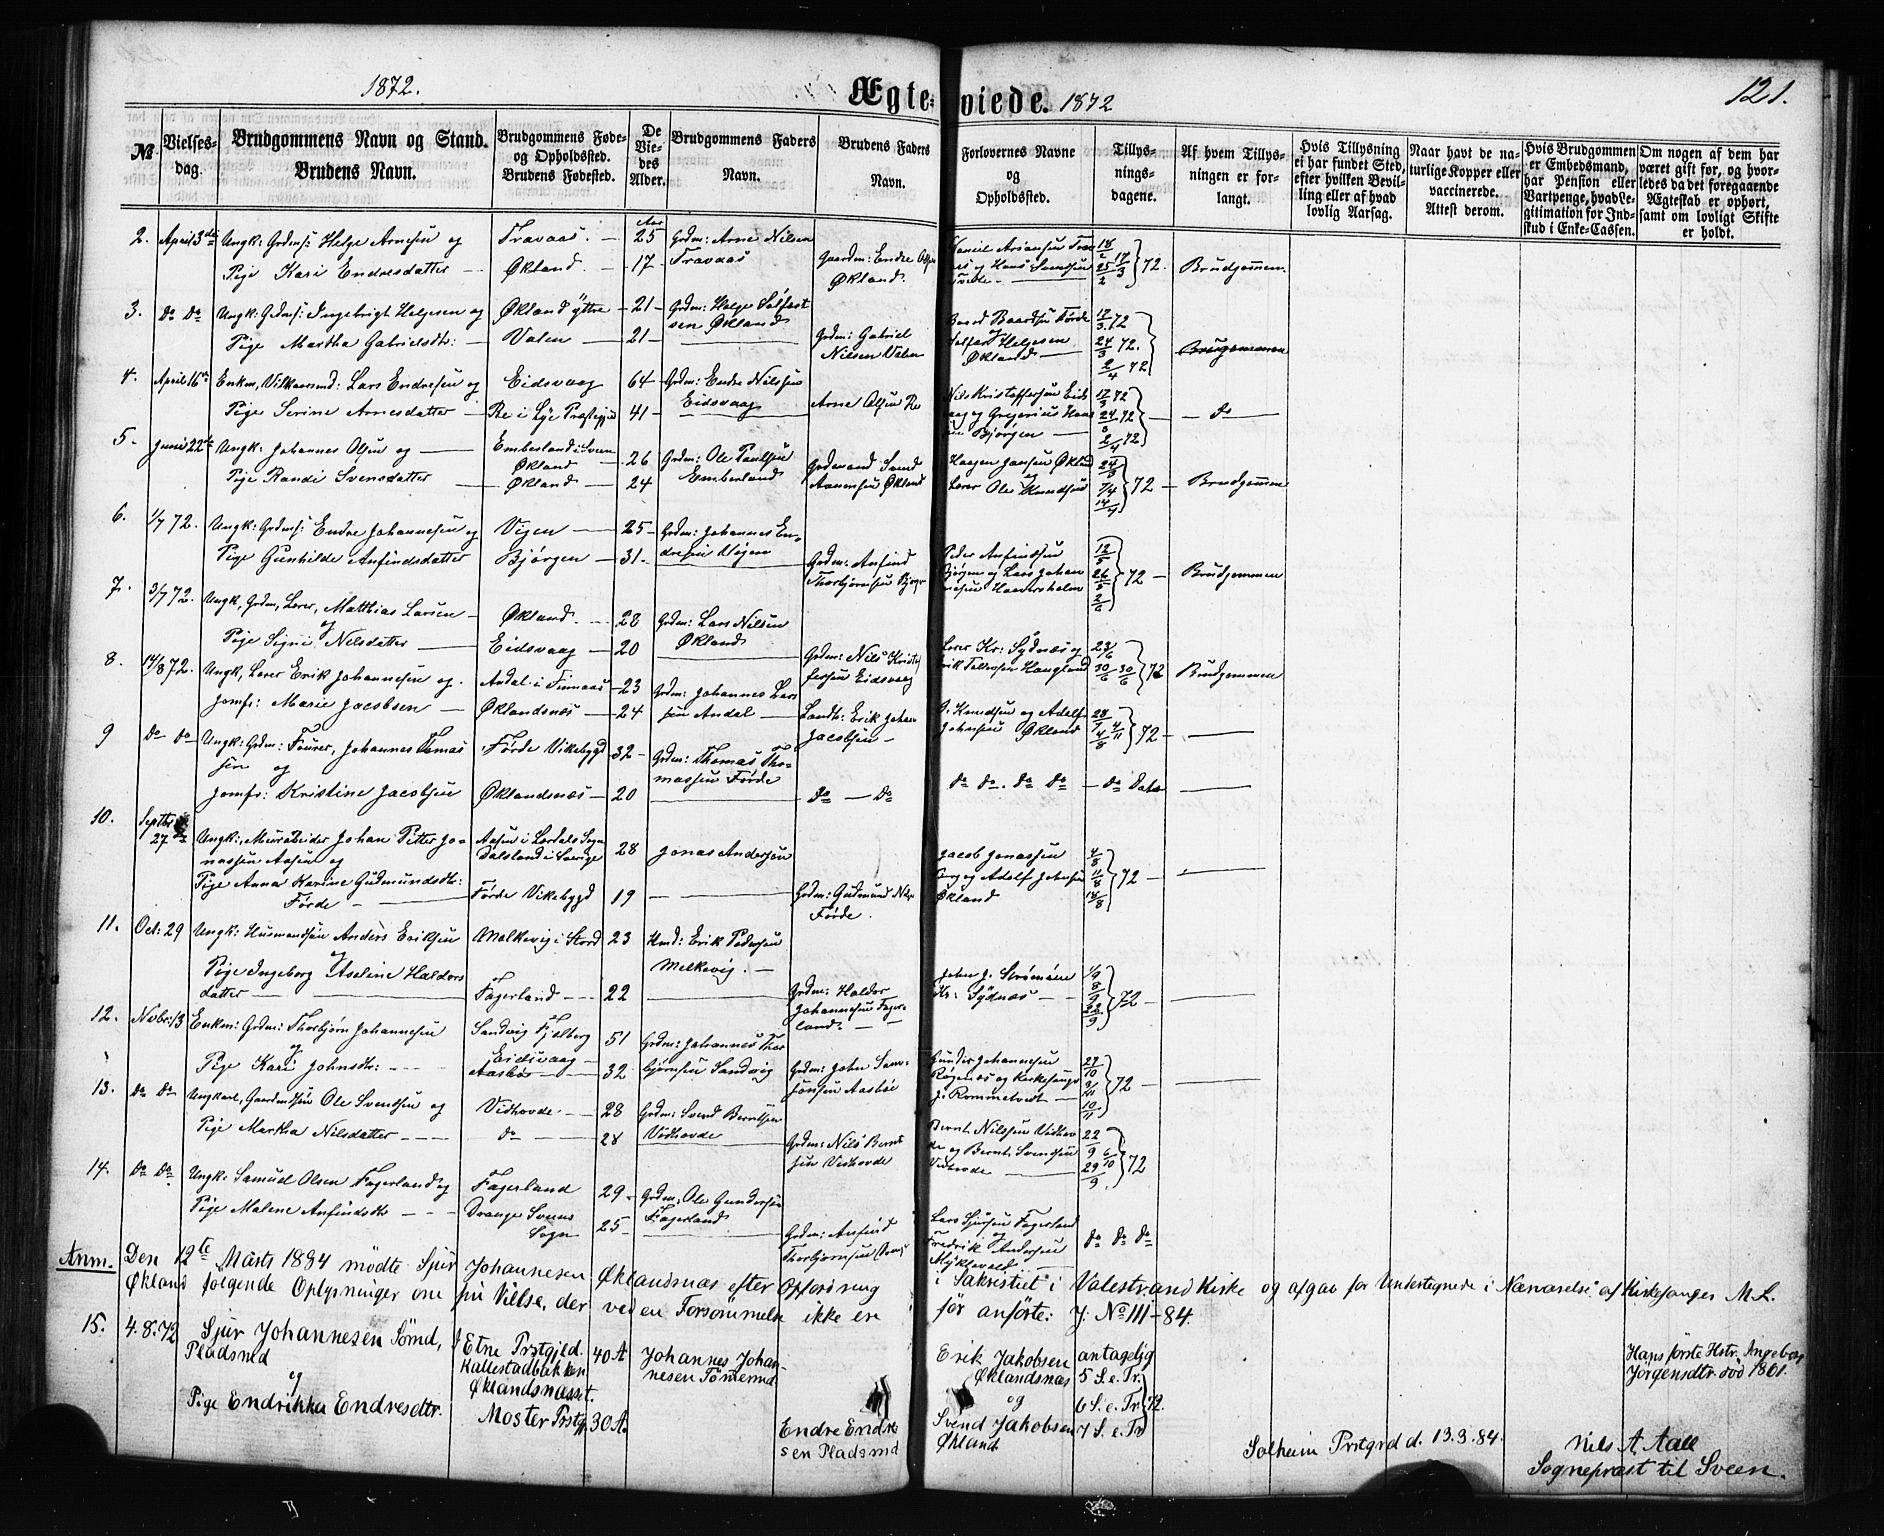 1872.
Ægte-
viede. 1872
121.
№
Vielses-
dag.
Brudgommens Navn og Stand.
Brudens Navn.
Brudgommens Føde-
og Opholdssted.
Brudens Fødested.
De
Vie-
des
Alder.
Brudgommens Faders
Navn.
Brudens Faders
Navn.
Forlovernes Navne
og
Opholdssted.
Tillys-
nings-
dagene.
Af hvem Tillys-
ningen er for-
langt.
Hvis Tillysning
ei har fundet Sted,
efter hvilken Bevil-
ling eller af hvad
lovlig Aarsag.
Naar havt de na-
turlige Kopper eller
vaccinerede.
Attest derom.
Hvis Brudgommen
er Embedsmand,
har Pension eller
Vartpenge, hvad Le-
gitimation for Ind-
skud i Enke-Cassen.
Om nogen af dem har
været gift før, og hvor-
ledes da det foregaaende
Ægteskab er ophørt,
samt om lovligt Skifte
er holdt.
2. April 3die Ungk: Grdms: Helge Arnesen og Travaas. — Aar 25 Grdm: Arne Nilsen
Pige Kari Endresdatter — Økland. — 17 — Travaas Gaardm: Endre Olsen Økland. 72. Brudgommen.
3. Do Do Ungk: Grdms: Ingebrigt Helgesen og Økland yttre — 21 — Grdm: Helge Salfæst
sen Økland
Pige Martha Gabrielsdtr: — Valen — 21 — Grdm: Gabriel
Nilsen Valen Baard Baardsen Førde
Helgesen
Økland 17/3 72
24/3 72.
2/4 72 Brudgommen
4. April 16de Enkm, Vilkaarsmd: Lars Endresen og Eidsvaag 64 — Grdm: Endre Nilsen
Eidsvaag
Pige Serine Arnesdatter — Re i Lye Præstegjd 41 — Arne Olsen Re Nils Kristoffersen Eids
vaag og Gregorius Hans
sen Bjørgen 17/3 72
24/3 72
2/4 72 — do —
5. Juni 22de Ungk: Johannes Olsen og — Emberland i Sveen
Økland — 26 Grdm: Ole Paulsen
Emberland
Pige Randi Svensdatter — Økland — 24 Grdmand Svend
Aanensen Økland Haagen Jansen Økland
Lærer Ole Knudsen 24/3
7/4
14/4 72 — Brudgommen
6. 1/7 72. Ungk: Grdms: Endre Johannesen og Vigen — 25 — Grdm: Johannes En-
dresen Vigen
Pige Gunhilde Anfindsdatter Bjørgen — 31 — Grdm: Anfind
Thorbjørnsen Bjørgen Peder Anfindsen
Bjørgen og Lars Johan
nesen 12/5
26/5
2/6 72 — Brudgommen
7. 3/7 72. Ungk, Grdm, Lærer, Matthias Larsen — Økland. — 28 Grdm: Lars Nilsen
og Økland
Pige Signe Nilsdatter — Eidsvaag — 20 Grdm: Nils Kristof
fersen Eidsvaag Lærer Kr: Sydnæs og
Haugland 30/6 72 Brudgommen
8. 14/8 72. Ungk, Lærer Erik Johannesen og. Andal i Finnaas — 23 Grdm: Johannes Lar
sen Andal —
Jomfr: Marie Jacobsen — Øklandsnæs — 24 Landh: Erik Johan
Jacobsen — Knudsen og Adolf
Johnsen Økland 28/7 4/8 4/11 72 —
9 Do Do Ungk: Grdm: Johannes Thomas
sen og Førde Vikebygd 32 — Grdm: Thomas Tho-
massen Førde
Jomfr: Kristine Jacobsen Øklandsnæs — 20 Do — Do Do Do. Do Do — Do Dato
10. Septbr
27de Ungk: Murarbeider Johan Petter Jo-
nassen Aasen og Aasen i Lerdals Sogn
Dalsland i Sverige 28 Jonas Andersen
Pige Anna Karine Gudmundsdtr:
Førde — Førde Vikebygd 19 Grdm: Gudmund Nils
Førde. Jacob Jonassen
og Adolf Johnsen
Økland 4/8
11/8
18/8 72 —
11. Oct: 29 Ungk: Husmandssøn Anders Eriksen Melkevig i Stord 23 Hmd: Erik Pedersen
Melkevig. —
Pige Ingeborg Aseline Haldors
datter — Fagerland — 22 Grdm: Haldor
Johannesen Fager-
land. — John J. Strømøen
Kr: Sydnæs — 72 —
12. Novbr: 13 Enkm: Grdm: Thorbjørn Johannesen Sandvig Fjelberg
Eidsvaag 51 Grdm: Johannes Thor
bjørnsen Sandvig
og
Pige Kari Johnsdtr: Aasbøe — 32 Grdm: John
Aasbøe Gunder Johannesen
og Kirkesanger
J. Rommetvedt — 27/10
3/11
10/11 72 —
13. Do Do Ungkarl, Gaardmdsøn Ole Svendsen og Vidhovde — 28 Grdm: Svend Berntsen
Vidhovde
Pige Martha Nilsdatter — do — 28 Grdm: Nils Bernt
sen Vidhovde Bernt Nilsen Vidhov
de og Bernt Svendsen
Vidhovde 22/9 6/10
29/9 72
14. Do Do Ungk: Samuel Olsen Fagerland og Fagerland 29 — Grdm: Ole Gundersen
Fagerland
Pige Malene Anfindsdtr — Drange Sveens
Sogn 25 — Grdm: Anfind
Thorbjørnsen Lars Sjursen Fagerland
og
Fredrik Andersen Do Do Do
Anm. Den 12te Marts 1884 mødte Sjur Johannesen Øklandsnæs efter Opfordring i Sakristiet i Valestrand Kirke og afgav for Undertegnede i Nærværelse af Kirkesanger M. L.
Økland følgende Oplysninger om sin Vielse, der ved en Forsømmelse ikke er før anførte: J. No 111-84.
15. 4.8.72 Sjur Johannesen Tømd,
Pladsmd
og
Pige Endrikka Endresdtr. f Etne Prstgjld.
Hallestadbakken
Øklandsnæsset.
Moster Prstgj. 40 A
30 A. Johannes Johan-
nesen Tømermd Endre Endre
sen Pladsmd Erik Jakobsen
Øklandsnæs
og
Svend Jakobsen
Økland antagelig
5 S. e. Tr.
6 S. e. Tr. 72.
7 S. e. Tr Hans første Hstr. Ingeborg
Jörgensdtr. död 1861.
Solheim Prstgrd d. 13.3.84.
Nils A. Aall
Sognepræst til Sveen.